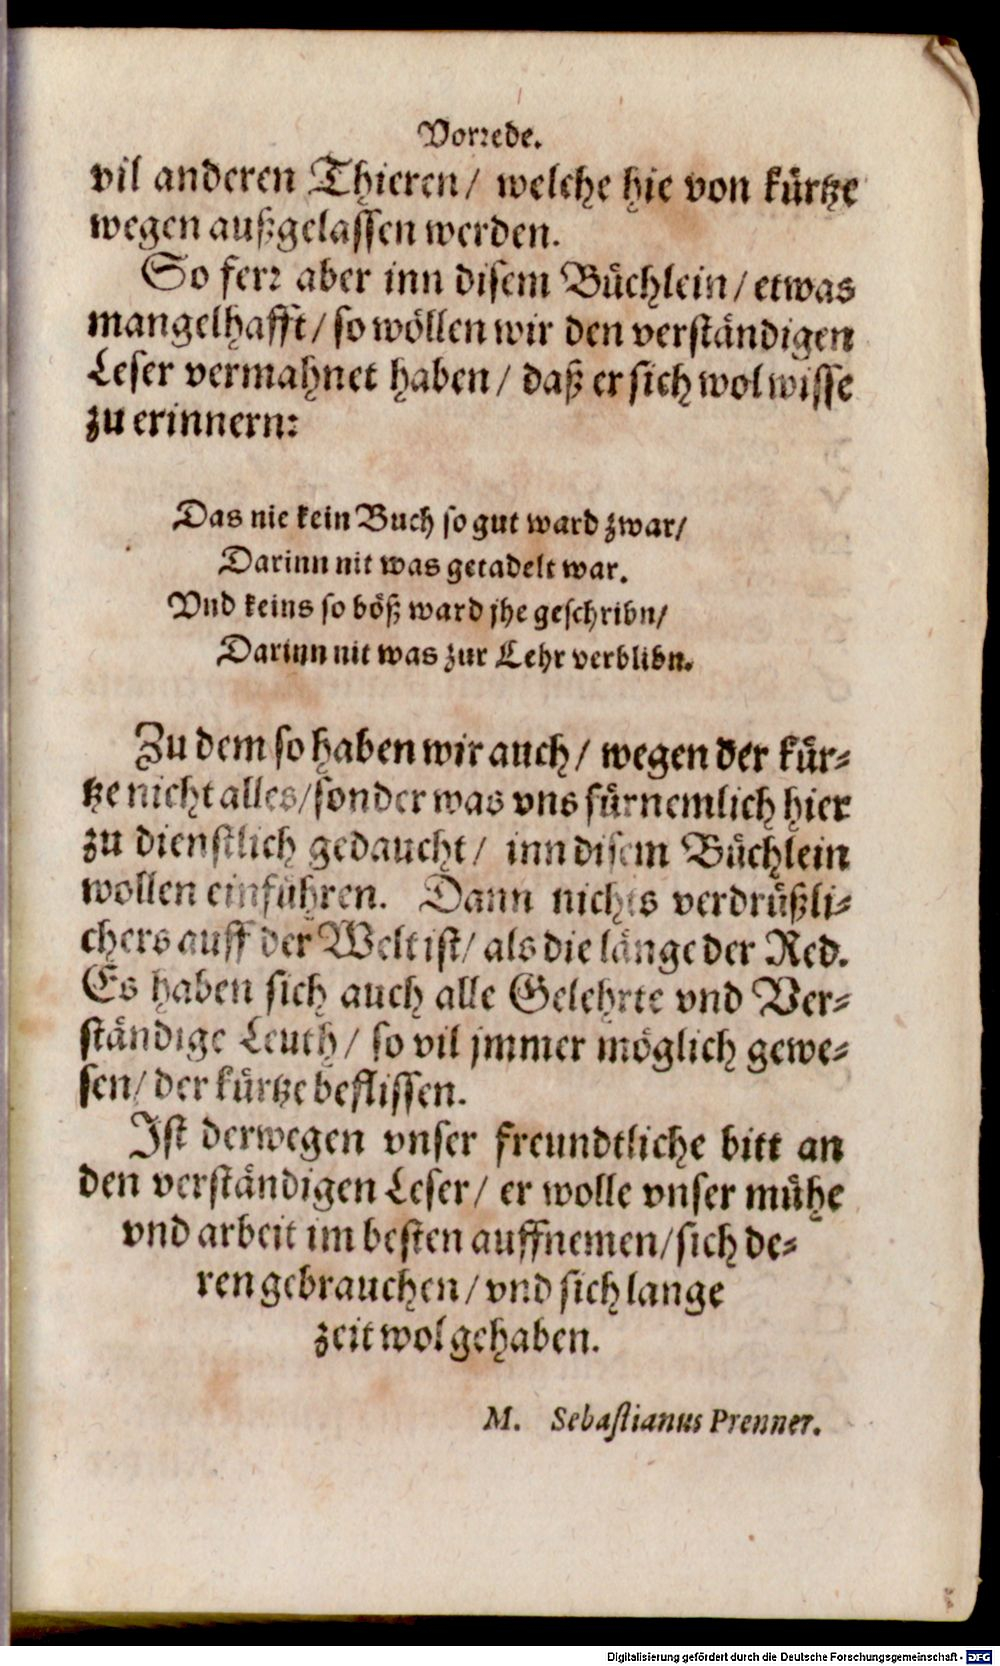 Vorrede.
vil anderen Thieren/ welche hie von kürtze
wegen außgelassen werden.
So ferr aber inn disem Büchlein/ etwas
mangelhafft/ so wöllen wir den verständigen
Leser vermahnet haben/ daß er sich wol wisse
zu erinnern:
Das nie kein Buch so gut ward zwar/
Darinn nit was getadelt war.
Vnd keins so böß ward jhe geschribn/
Darinn nit was zur Lehr verblibn.
Zu dem so haben wir auch/ wegen der kür-
tze nicht alles/ sonder was vns fürnemlich hier
zu dienstlich gedaucht/ inn disem Büchlein
wollen einführen. Dann nichts verdrüßli-
chers auff der Welt ist/ als die länge der Red.
Es haben sich auch alle Gelehrte vnd Ver-
ständige Leuth/ so vil jmmer möglich gewe-
sen/ der kürtze beflissen.
Ist derwegen vnser freundtliche bitt an
den verständigen Leser/ er wolle vnser mühe
vnd arbeit im besten auffnemen/ sich de-
ren gebrauchen/ vnd sich lange
zeit wol gehaben.
M. Sebastianus Prenner.
Digitalisierung gefördert durch die Deutsche Forschungsgemeinschaft - DFG